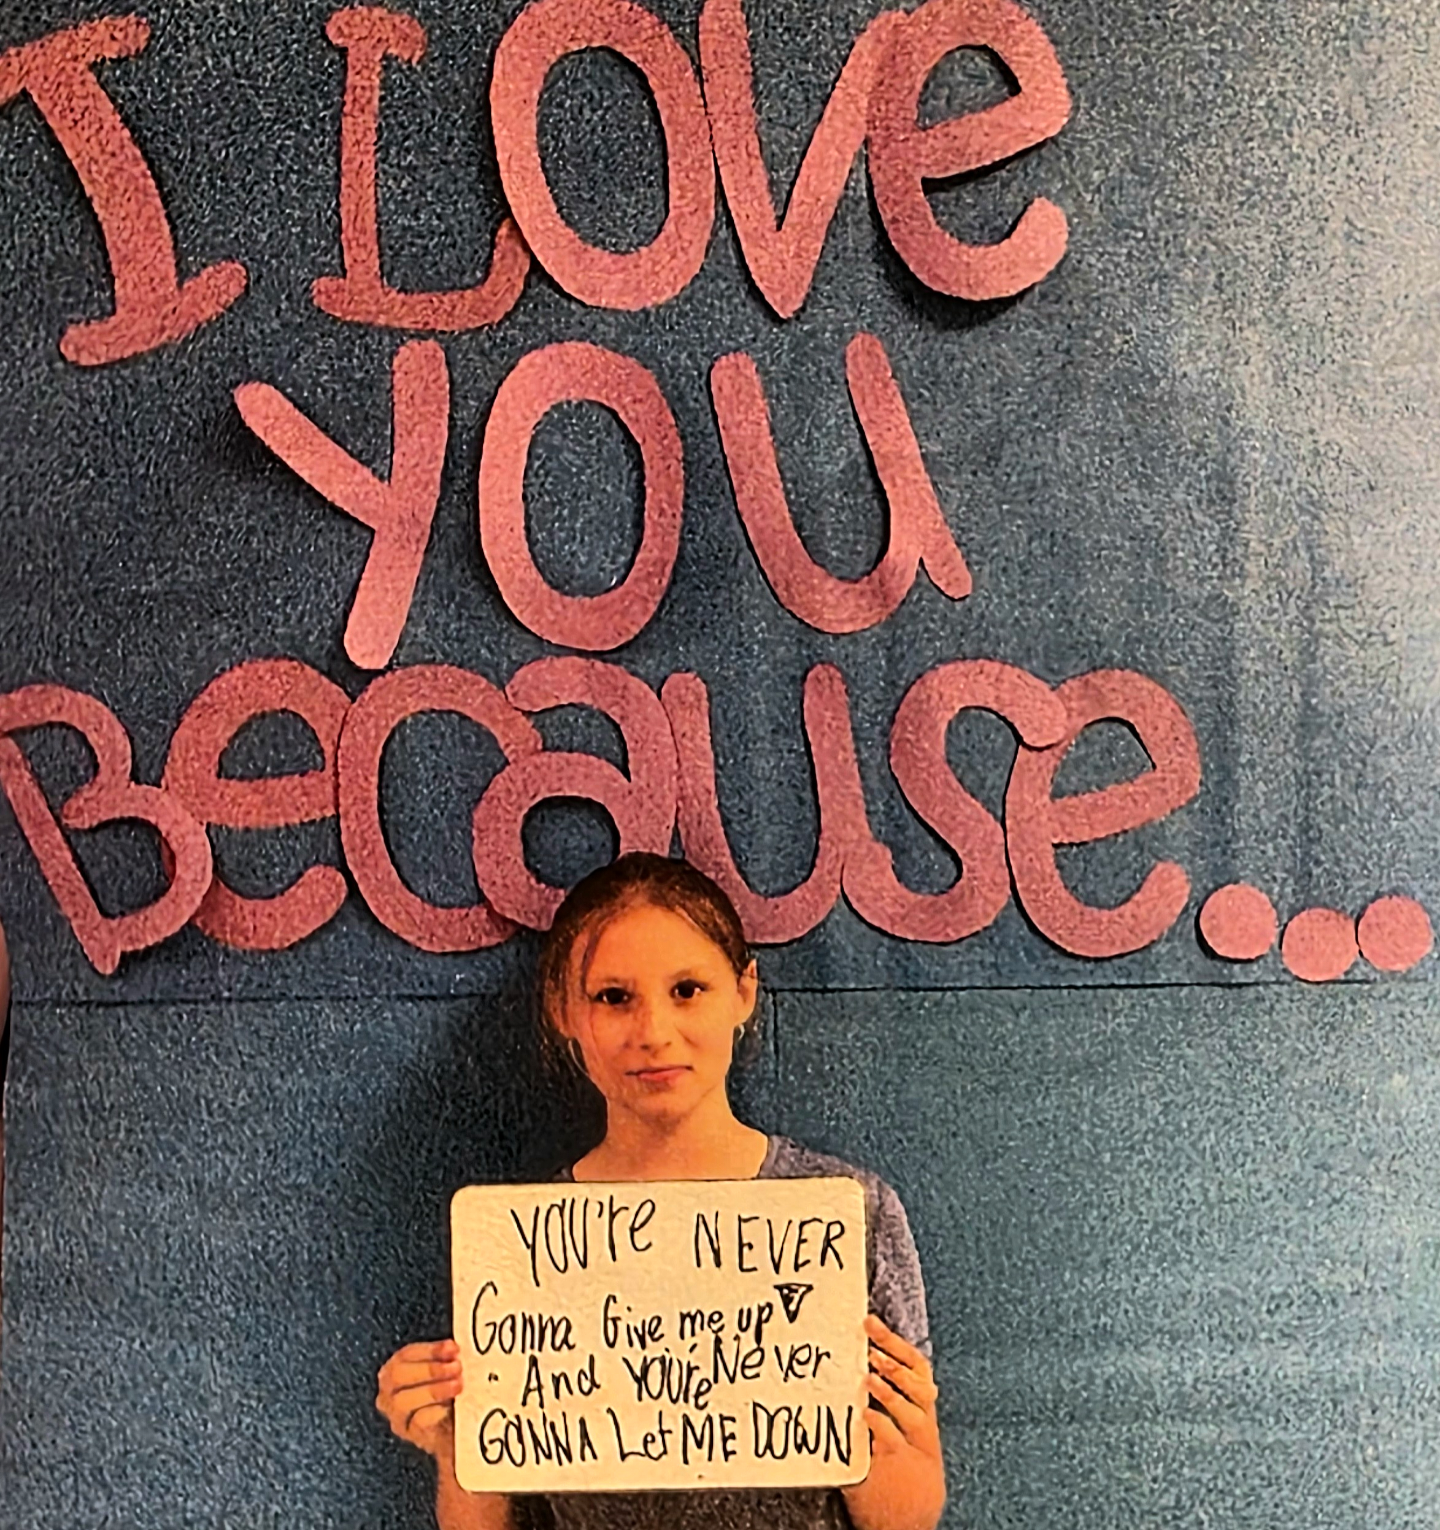 I Love
YOU
Because...
YOU're NEVER
Gonna Give me up
And YOU're Never
GONNA Let ME DOWN